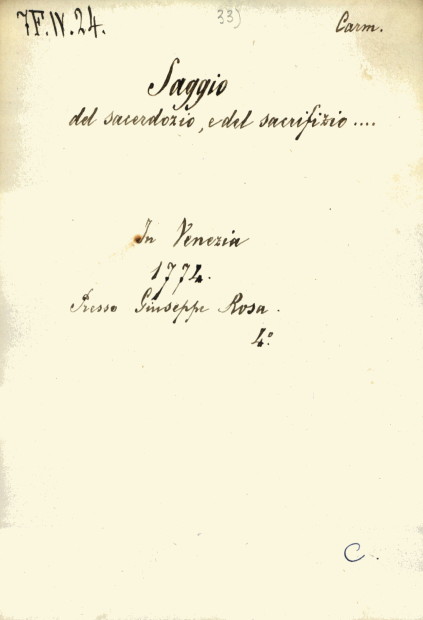 7F.IV.24.
33)
Carm.
Saggio
del sacerdozio, e del sacrifizio....
In Venezia
1774.
Presso Giuseppe Rosa.
4.º
C.